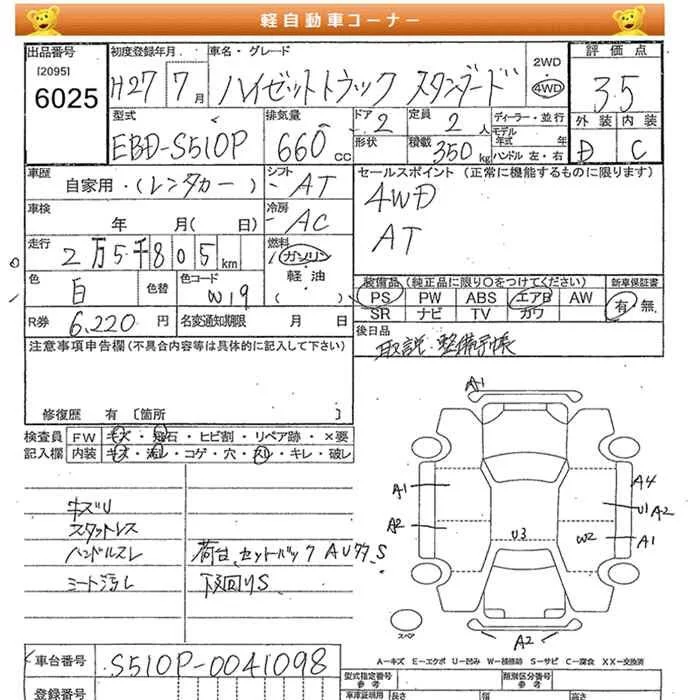 軽自動車コーナー
出品番号 初度登録年月 車名・グレード 2WD 評価点
[2095] H27 7月 ハイゼットトラック スタンダード 4WD 3.5
6025
型式 排気量 ドア 2 定員 2人 ディーラー・並行 外装 内装
EBD-S510P 660cc 形状 積載 350kg モデル年式 年 D C
ハンドル左・右
車歴 シフト セールスポイント (正常に機能するものに限ります)
自家用・(レンタカー) AT 4WD
車検 冷房 AT
年 月( 日) AC
走行 燃料
2万5千805km ガソリン
色 色替 色コード 軽油 装備品 (純正品に限り○をつけてください) 新車保証書
白 W19 ( ) PS PW ABS エアB AW 有 無
SR ナビ TV カワ
R券 6,220円 名変通知期限 月 日 後日品
取説・整備手帳
注意事項申告欄(不具合内容等は具体的に記入して下さい)
修復歴 有 〔箇所 〕
検査員 FW キズ・飛石・ヒビ割・リペア跡・×要
記入欄 内装 キズ・汚レ・コゲ・穴・スレ・キレ・破レ
A1
A1 A4
キズU U1 A2
スタットレス A2 W2 A1
ハンドルスレ 荷台、セットバック AUサタS U3
シート汚レ 下回りS
スペア A2
A-キズ E-エクボ U-凹み W-補修跡 S-サビ C-腐食 XX-交換済
車台番号 S510P-0041098 型式指定番号 類別区分番号
参考 参考
登録番号 車庫証明用 長さ 幅 高さ